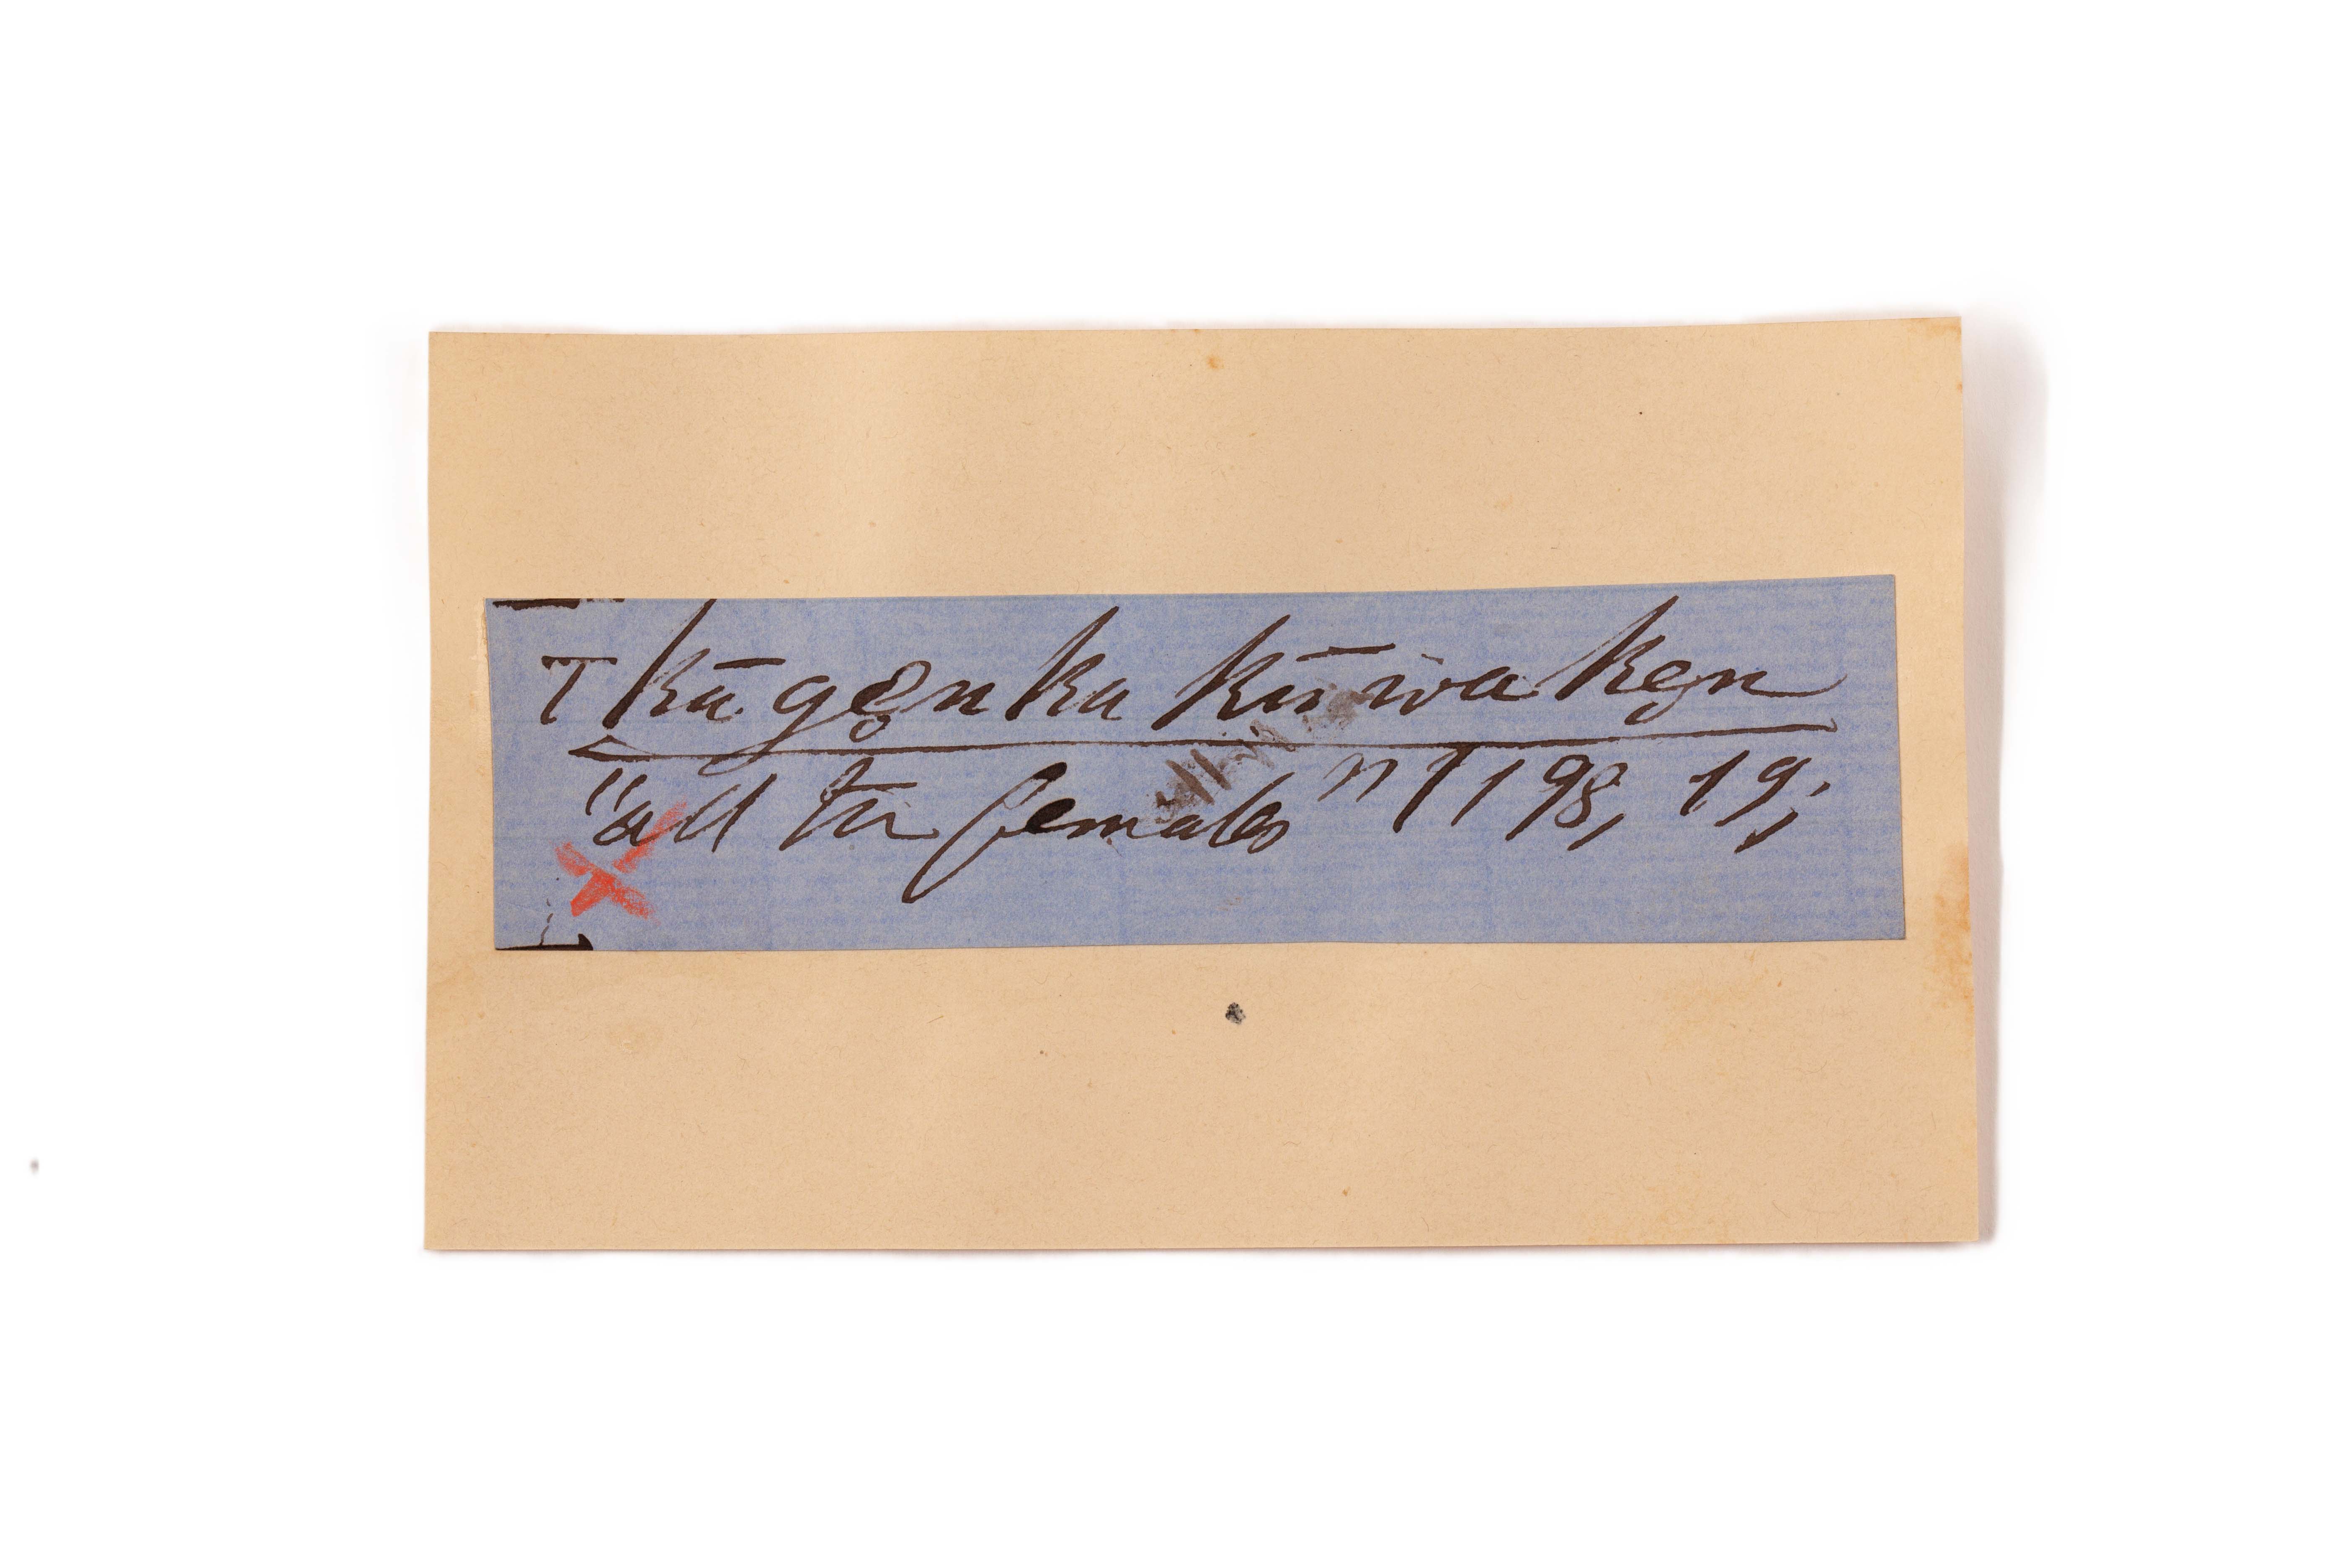 T kū genku kūwa ken
"all the females" T 198, 19;